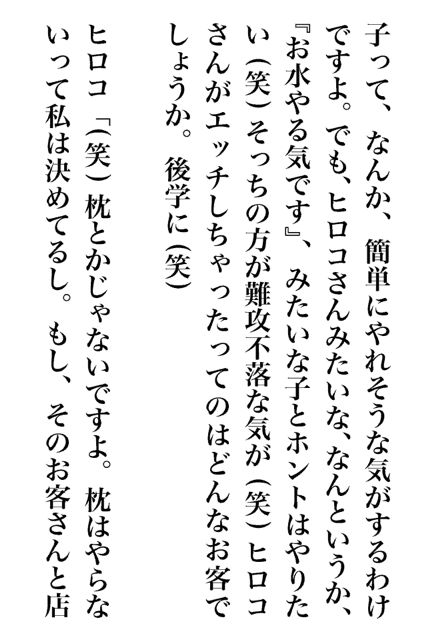 子って、なんか、簡単にやれそうな気がするわけ
ですよ。でも、ヒロコさんみたいな、なんというか、
『お水やる気です』、みたいな子とホントはやりた
い(笑)そっちの方が難攻不落な気が(笑)ヒロコ
さんがエッチしちゃったってのはどんなお客で
しょうか。後学に(笑)
ヒロコ「(笑)枕とかじゃないですよ。枕はやらな
いって私は決めてるし。もし、そのお客さんと店